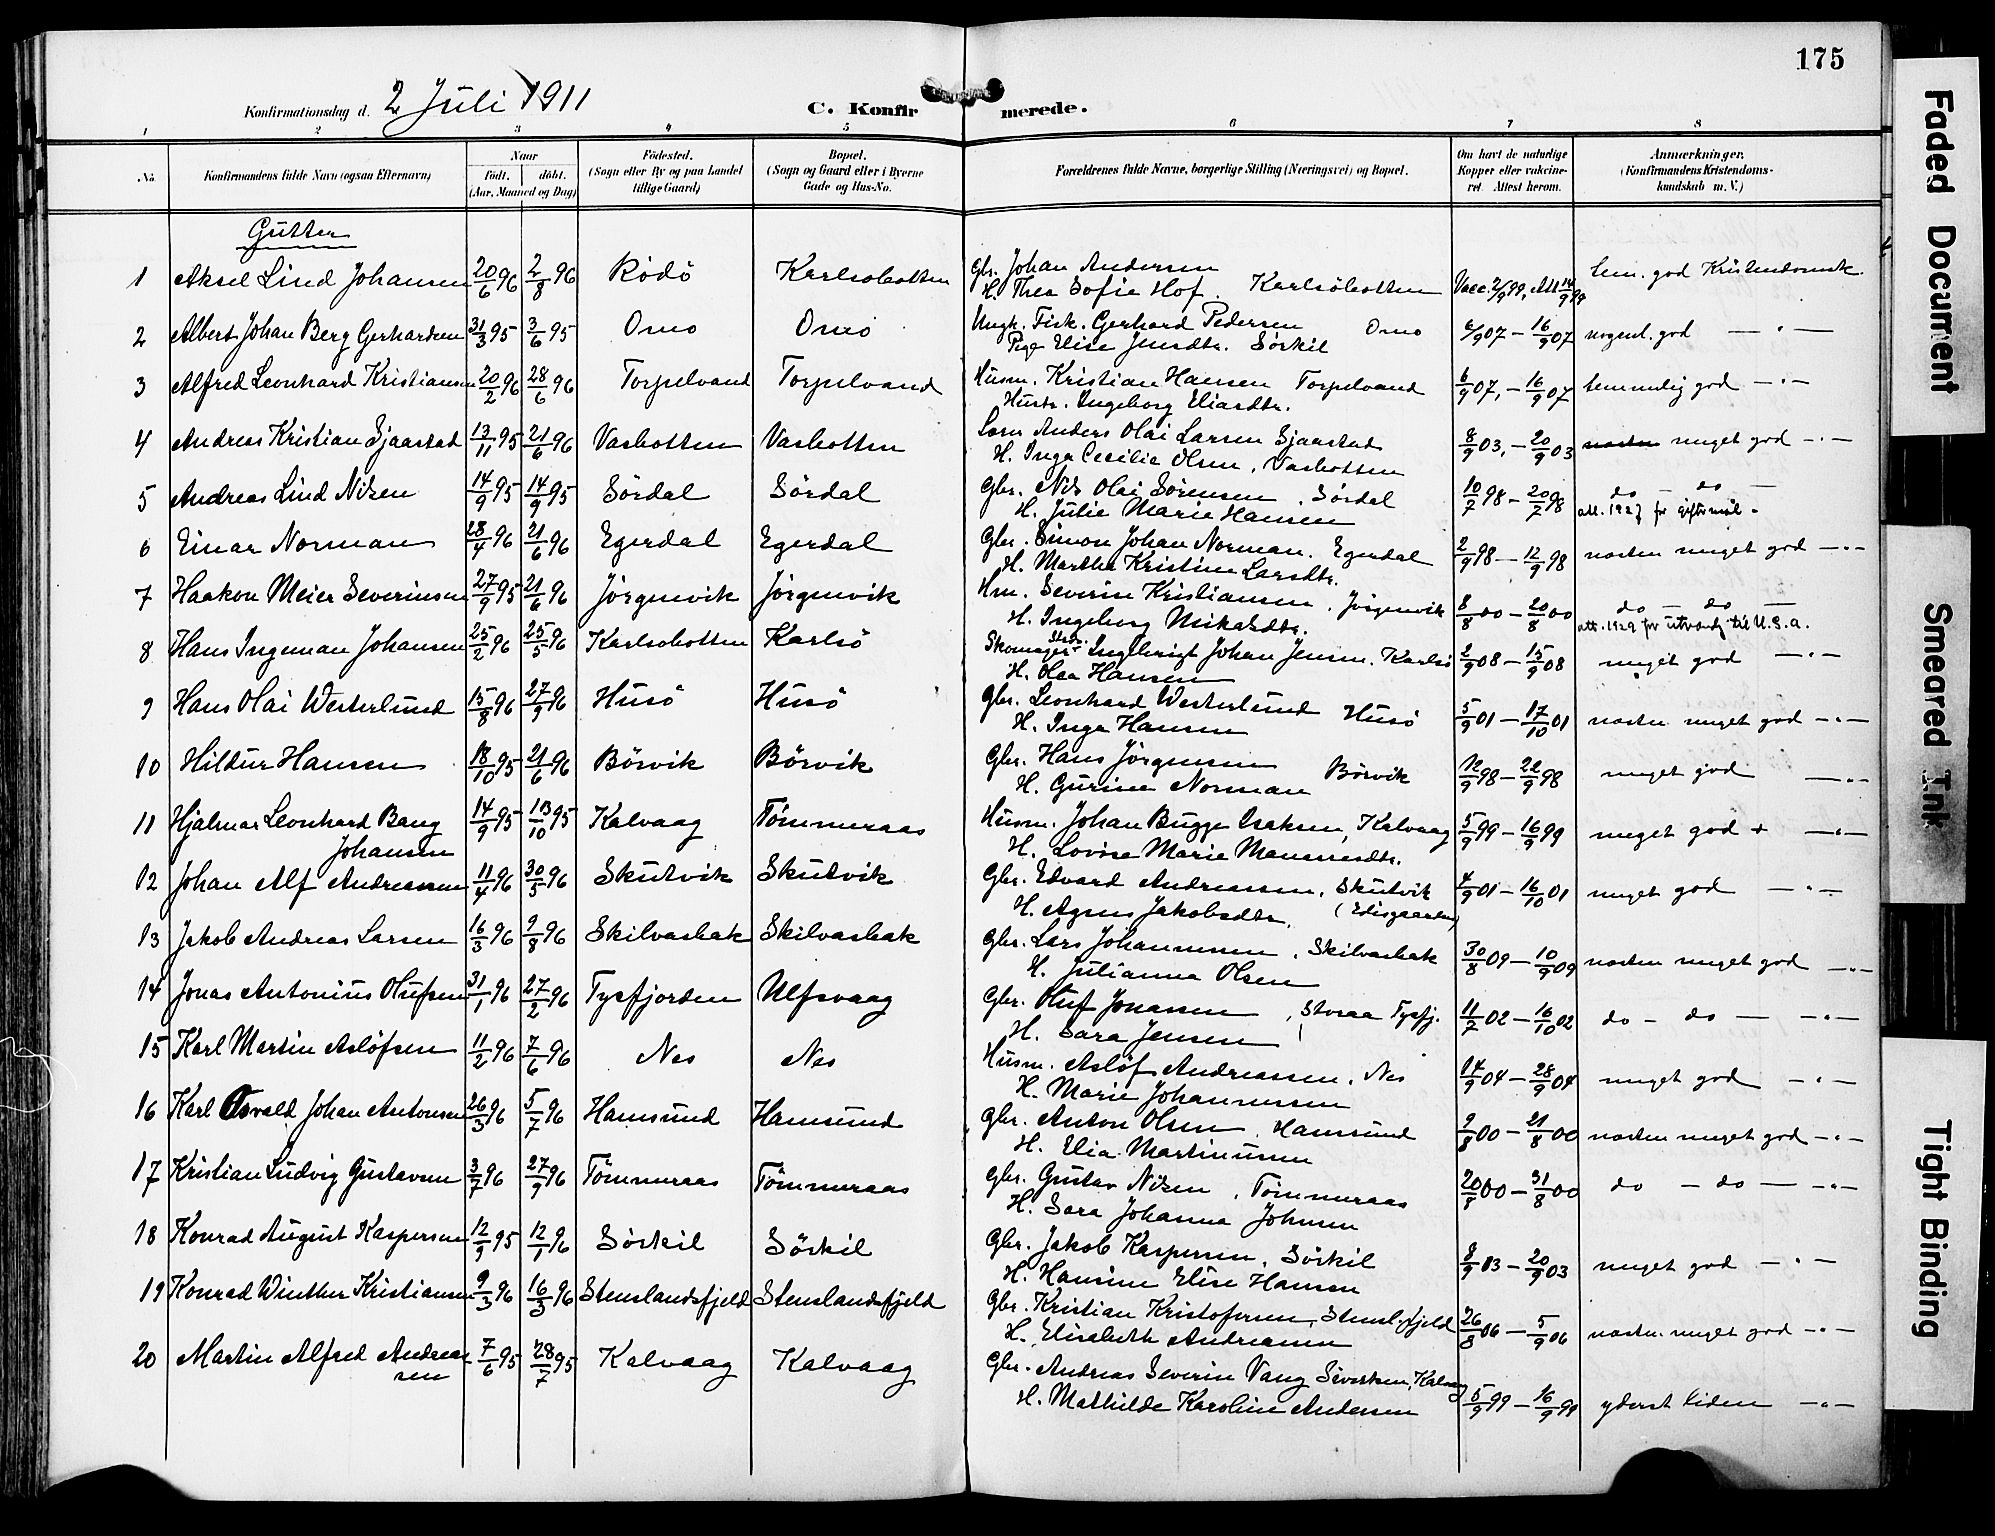 175
Konfirmationsdag d. 2 Juli 1911
C. Konfirmerede.
1 2 3 4 5 6 7 8
No. Konfirmandens fulde Navn (ogsaa Efternavn) Naar født. døbt. (Aar, Maaned og Dag) Fødested. (Sogn eller By og paa Landet tillige Gaard) Bopæl. (Sogn og Gaard eller i Byerne Gade og Hus-No. Forældrenes fulde Navne, borgerlige Stilling (Næringsvei) og Bopæl. Om havt de naturlige Kopper eller vakcineret. Attest herom. Anmærkninger. (Konfirmandens Kristendomskundskab m. V.)
Gutter
1 Aksel Lind Johansen 20/6 96 2/8 96 Rödö Karlsöbotten Gbr. Johan Andersen Vacc. 2/9 99, Att 14/9 99 tem. god Kristendomsk.
H. Thea Sofie Hof. Karlsöbotten
2 Albert Johan Berg Gerhardsen 31/3 95 3/6 95 Omo Omo Ungk. Fisk. Gerhard Pedersen Omo 6/9 07 – 16/9 07 nogenl. god — " —
Pige Elise Jensdtr. Sörkil
3 Alfred Leonhard Kristiansen 20/2 96 28/6 96 Torpelvand Torpelvand Husm. Kristian Hansen Torpelvand 6/9 07, – 16/9 07 temmelig god — " —
Hustr. Ingeborg Eliasdtr.
4 Andreas Kristian Sjaastad 13/11 95 21/6 96 Vasbotten Vasbotten Anders Olai Larsen Sjaastad 8/9 03, – 20/9 03 næsten meget god — " —
H. Inga Cecilie Olsen, Vasbotten
5 Andreas Lind Nilsen 14/9 95 14/9 95 Sördal Sördal Gbr. Nils Olai Sörensen, Sördal 10/7 98 – 20/7 98 do – do —
H. Julie Marie Hansen att. 1927 for giftermål.
6 Einar Norman 28/4 96 21/6 96 Egerdal Egerdal Gbr. Simon Johan Norman. Egerdal 2/9 98 – 12/9 98 næsten meget god — " —
H. Martha Kristine Larsdtr.
7 Haakon Meier Severinsen 27/9 95 21/6 96 Jörgenvik Jörgenvik Hm. Severin Kristiansen, Jörgenvik 8/8 00 – 20/8 00 do – do —
H. Ingeborg Nikolsdtr. att. 1929 for utvandr til U.S.a.
8 Hans Ingeman Johansen 25/2 96 25/5 96 Karlsobotten Karlsö Skomager Ingebrigt Johan Jensen. Karlsö 2/9 08 – 15/9 08 meget god — " —
H. Olea Hansen
9 Hans Olai Westerlund 15/8 96 27/9 96 Husö Husö Gbr. Leonhard Westerlund Husö 5/9 01 – 17/10 01 næsten meget god — " —
H. Inga Hansen
10 Hildur Hansen 18/10 95 21/6 96 Börvik Börvik Gbr. Hans Jörgensen Börvik 12/9 98 – 22/9 98 meget god — " —
H. Gurine Norman
11 Hjalmar Leonhard Bang 14/9 95 13/10 95 Kalvaag Tömmeraas Husm. Johan Bugge Isaksen, Kalvaag 5/9 99 – 16/9 99 meget god + — " —
Johansen H. Lovise Marie Manassesdtr.
12 Johan Alf Andreassen 11/4 96 30/5 96 Skutvik Skutvik Gbr. Edvard Andreassen, Skutvik 4/9 01 – 16/10 01 meget god — " —
H. Agnes Jakobsdtr.
13 Jakob Andreas Larsen 16/3 96 9/8 96 Skilvasbak Skilvasbak Gbr. Lars Johannessen, Skilvasbak 30/8 09 – 10/9 09 næsten meget god — " —
H. Julianna Olsen
14 Jonas Antonius Olufsen 31/1 96 27/2 96 Tysfjorden Ulfsvaag Gbr. Oluf Jonassen, Storaa Tysfj. 11/7 02 – 16/10 02 do – do — — " —
H. Sara Jensen
15 Karl Martin Aslöfsen 11/2 96 7/6 96 Nes Nes Husm. Aslöf Andreassen. Nes 14/9 04 – 28/9 04 meget god — " —
H. Marie Johannessen
16 Karl Osvald Johan Antonsen 26/3 96 5/7 96 Hamsund Hamsund Gbr. Anton Olsen. Hamsund 9/8 00 – 21/8 00 næsten meget god — " —
H. Elia Martinussen
17 Kristian Ludvig Gustavsen 3/7 96 27/9 96 Tömmeraas Tömmeraas Gbr. Gustav Nilsen, Tömmeraas 20/8 00 – 31/8 00 do – do — — " —
H. Sara Johanna Johnsen
18 Konrad August Kaspersen 12/9 95 12/1 96 Sörkil Sörkil Gbr. Jakob Kaspersen, Sörkil 8/9 03 – 20/9 03 meget god — " —
H. Hansine Elise Hansen
19 Konrad Winther Kristiansen 9/3 96 16/3 96 Stenslandsfjeld Stenslandsfjeld Gbr. Kristian Kristofersen, Stensl.fjeld 26/8 06 – 5/9 06 næsten meget god — " —
H. Elisabeth Andreassen
20 Martin Alfred Andreas 7/6 95 28/7 95 Kalvaag Kalvaag Gbr. Andreas Severin Vang Sivertsen, Kalvaag 5/9 99 – 16/9 99 yderst liden — " —
sen H. Mathilde Karoline Andersen
Faded Document
Smeared Ink
Tight Binding